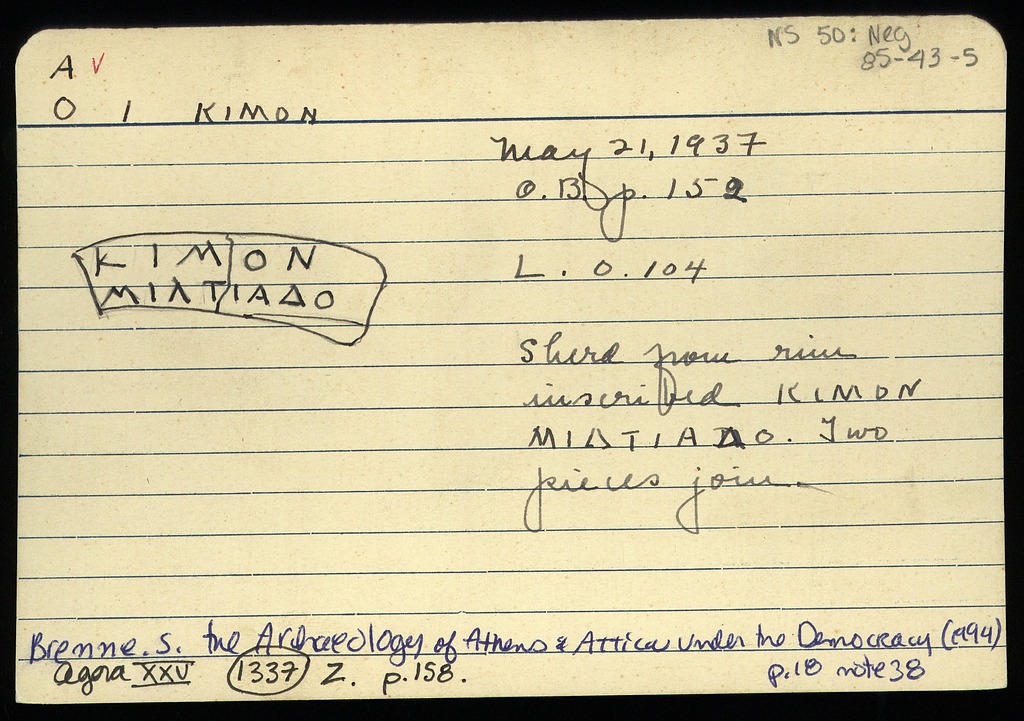 NS 50: Neg
85-43-5
A
O 1 KIMON
May 21, 1937
O.B. p. 152
L. 0.104
ΚΙΜΟΝ
ΜΙΛΤΙΑΔΟ
Sherd from rim
inscribed ΚΙΜΟΝ
ΜΙΛΤΙΑΔΟ. Two
pieces join.
Brenne. S. the Archaeology of Athens & Attica under the Democracy (1994)
p.18 note 38
Agora XXV 1337 Z. p.158.